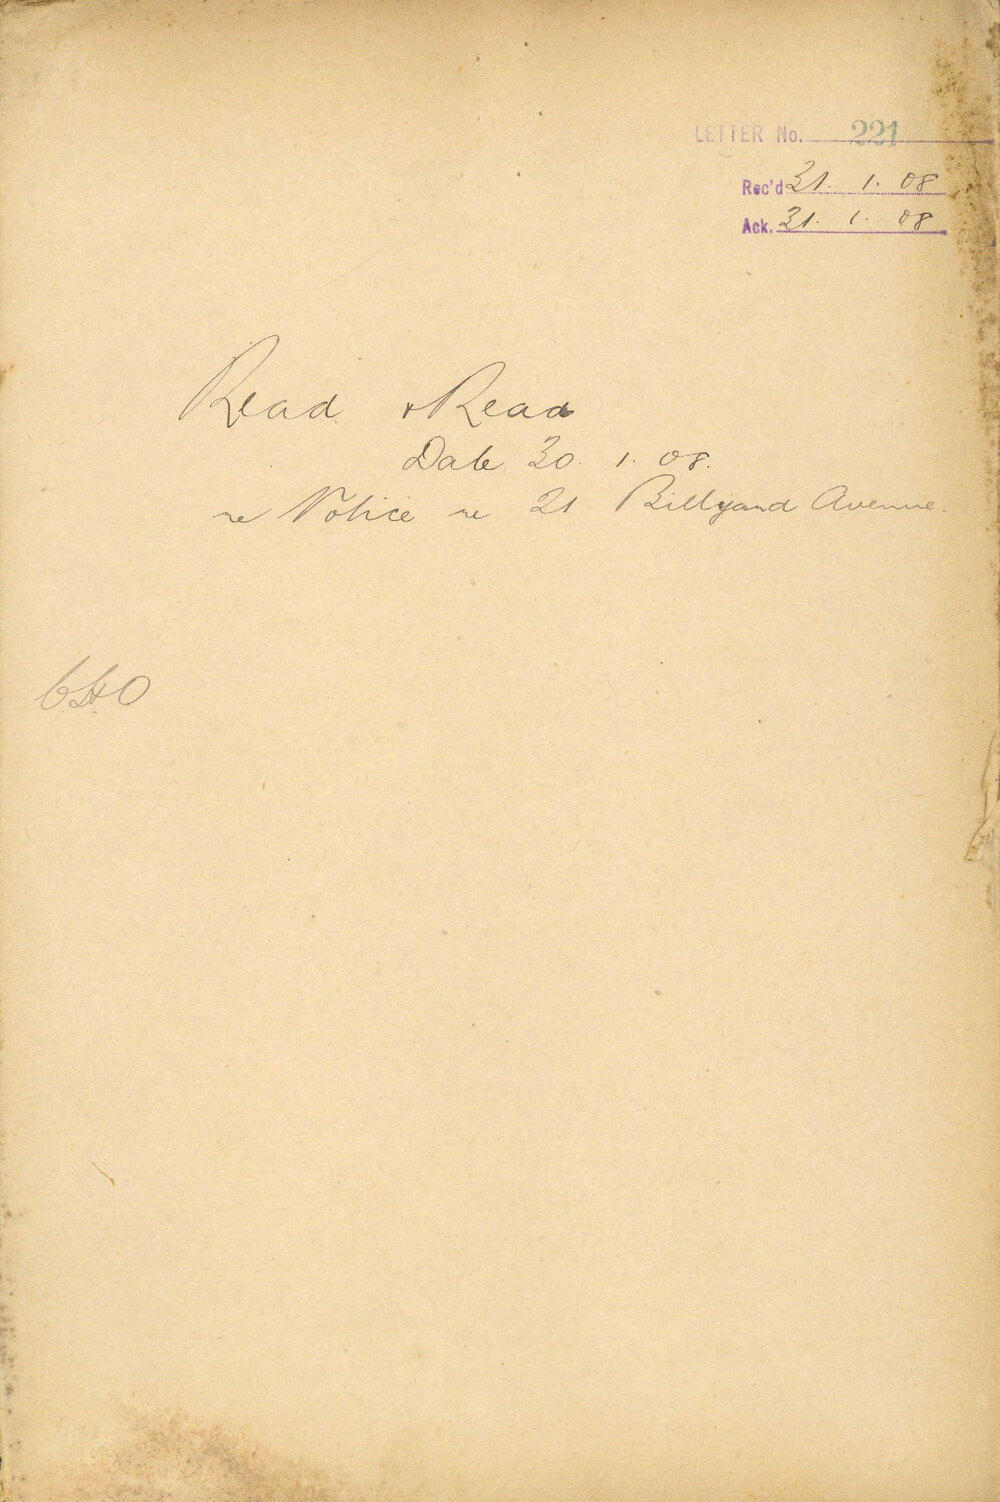 LETTER No. 221
Rec'd 31. 1. 08
Ack. 31. 1. 08
Read & Read
Date 30. 1. 08.
re Notice re 21 Billyard Avenue.
CHO